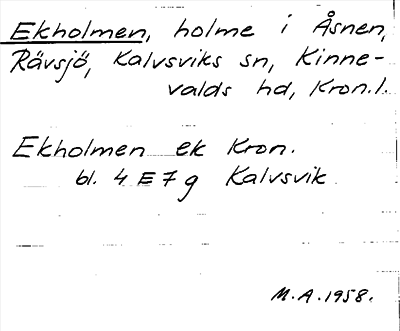 Ekholmen, holme i Åsnen,
Rävsjö, Kalvsviks sn, Kinne-
valds hd, Kron.l.
Ekholmen ek Kron.
bl. 4 E 7 g Kalvsvik
M.A.1958.